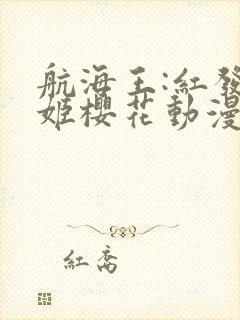 航海王:紅發
姬櫻花動漫
紅喬